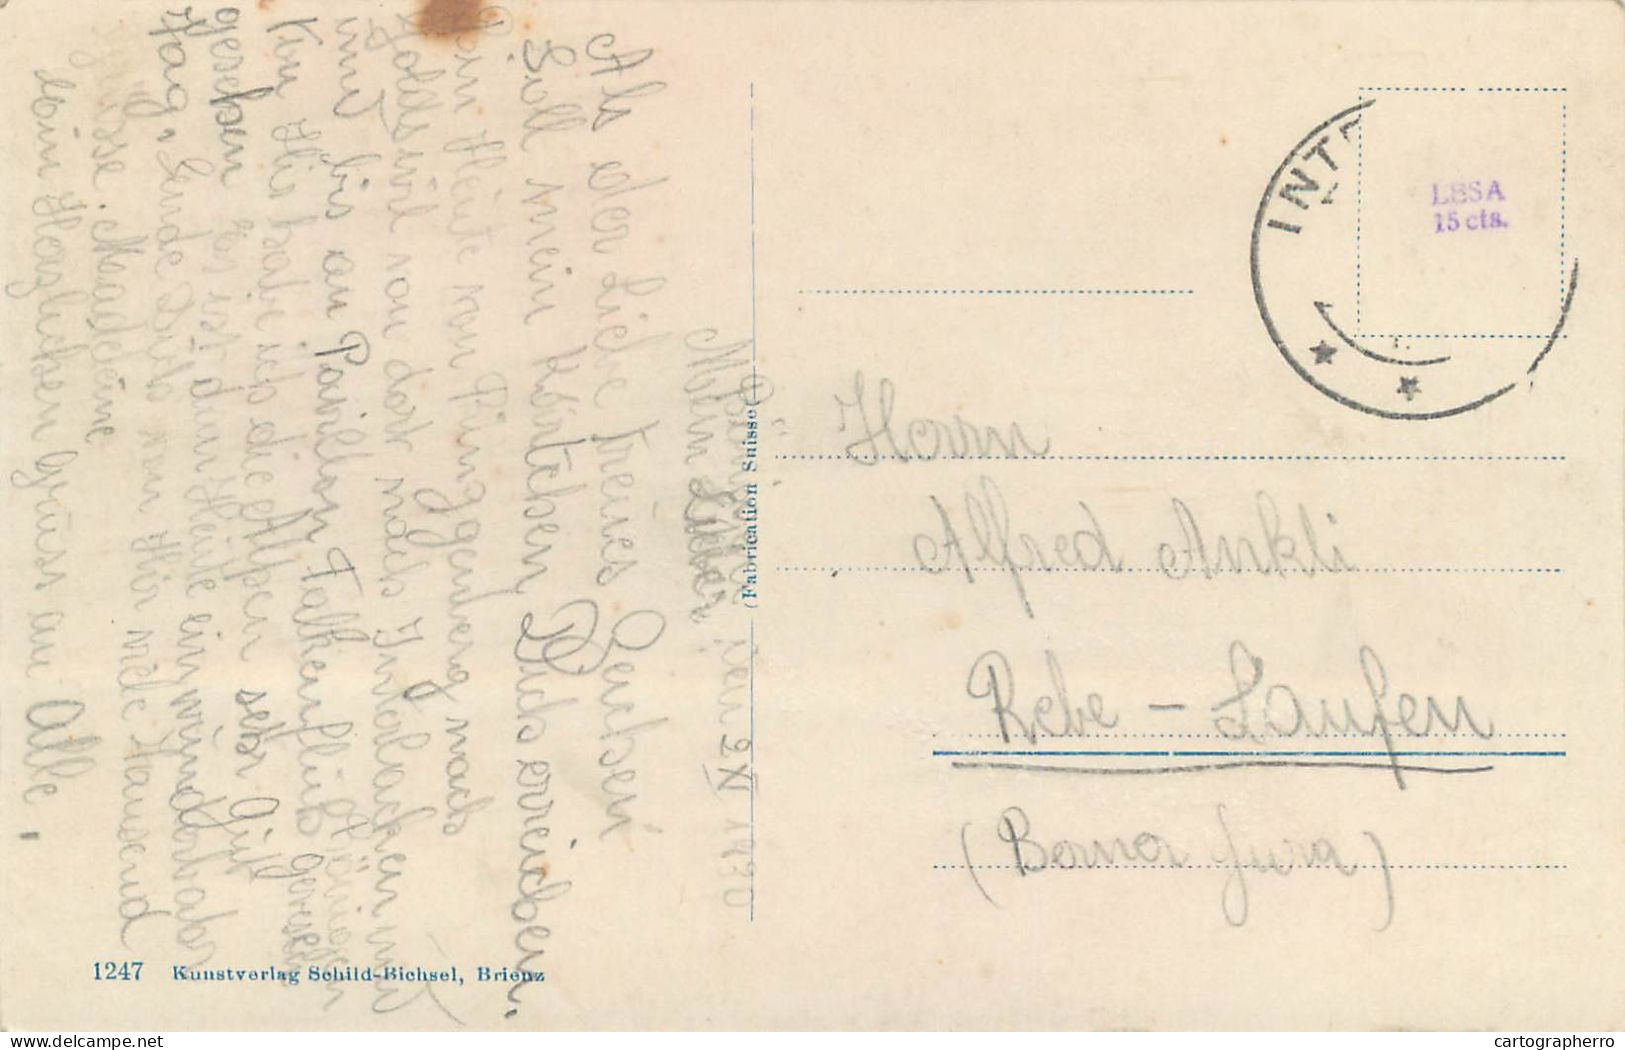 Bönigen, den 9 XI 1930
Mein Lieber!
Als der Liebe treues Zeichen
Soll mein Kärtchen Dich erreichen.
Bin Heute von Ringgenberg nach
Goldswil von dort nach Interlacken und
und bis an Pavillon Falkenfluh gewesen
Von Hir habe ich die Alpen sehr gut
gesehen Es ist dier Heute ein wunderbahr
Tag,
von Hir viele Tausend
Grüsse Madeleine
ein Hezlichen gruss an Alle.
(Fabrication Suisse)
INTE
LESA
15 cts.
Herrn
Alfred Ankli
Rebe - Laufen
(Berner Jura)
1247 Kunstverlag Schild-Bichsel, Brienz
cartographerro.delcampe.net
cartographerro